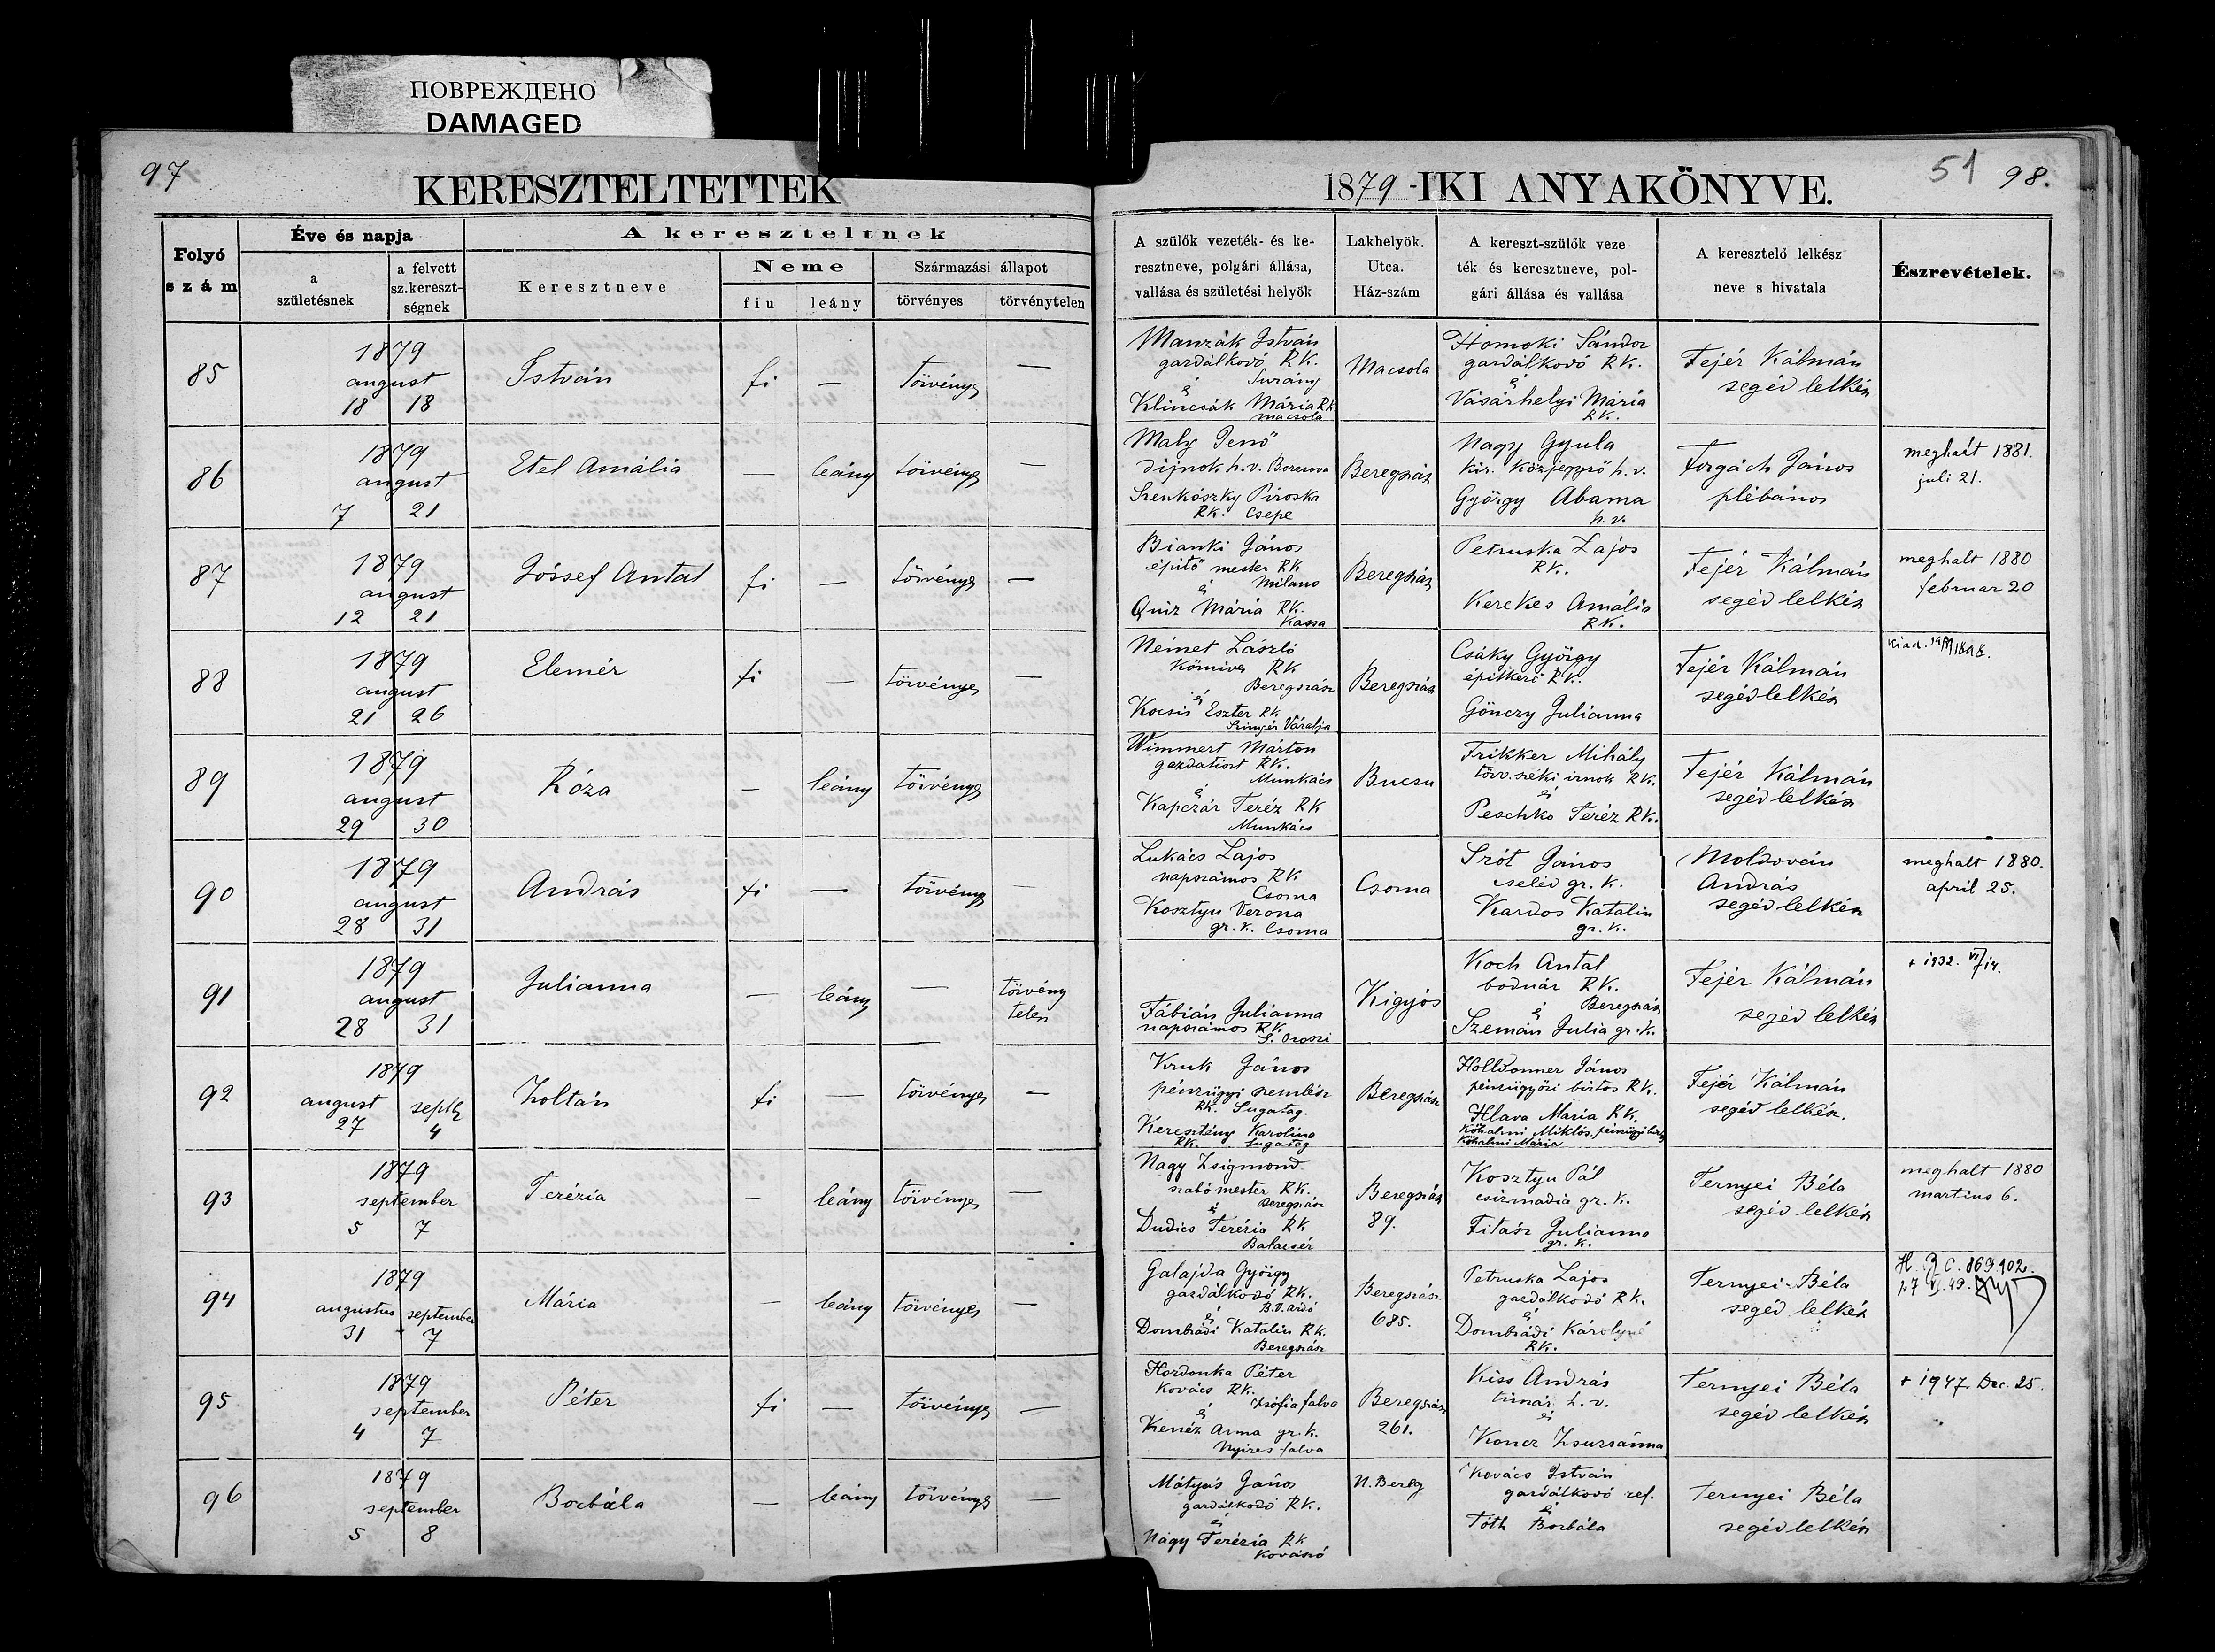 ПОВРЕЖДЕНО
DAMAGED
97
KERESZTELTETTEK
1879 -IKI ANYAKÖNYVE.
51 98.
Folyó szám
Éve és napja
a születésnek
a felvett sz.kereszt-ségnek
A kereszteltnek
Keresztneve
Neme
fiu
leány
Származási állapot
törvényes
törvénytelen
A szülők vezeték- és ke-
resztneve, polgári állása,
vallása és születési helyök
Lakhelyök.
Utca.
Ház-szám
A kereszt-szülők veze-
ték és keresztneve, pol-
gári állása és vallása
A keresztelő lelkész
neve s hivatala
Észrevételek.
85
1879
august
18 18
István
fi
—
törvényes
—
Manzák István
gazdálkodó RK.
Surány
é
Klincsák Mária RK.
Macsola
Macsola
Homoki Sándor
gazdálkodó RK.
é
Vásárhelyi Mária
RK.
Fejér Kálmán
segéd lelkész
86
1879
august
7 21
Etel Amália
—
leány
törvényes
—
Maly Jenő
dijnok h.v. Borzsova
Szenkószky Piroska
RK. Csepe
Beregszász
Nagy Gyula
kir. közjegyző h.v.
György Abama
h.v.
Forgách János
plébános
meghalt 1881.
juli 21.
87
1879
august
12 21
József Antal
fi
—
törvényes
—
Bianki János
épitő mester RK
é Milano
Quiz Mária RK.
Kassa
Beregszász
Petruska Lajos
RK.
Kerekes Amália
RK.
Fejér Kálmán
segéd lelkész
meghalt 1880
februar 20
88
1879
august
21 26
Elemér
fi
—
törvényes
—
Német László
kőmives RK
Beregszász
é
Kocsis Eszter RK
Szinyér Váralja
Beregszász
Csáky György
épitkezi RK.
Gönczy Julianna
Fejér Kálmán
segéd lelkész
kiad.
89
1879
august
29 30
Róza
—
leány
törvényes
Wimmert Márton
gazdatiszt RK.
Munkács
é
Kapczár Teréz RK
Munkács
Bucsu
Frikker Mihály
törv.széki irnok RK.
és
Peschko Teréz RK.
Fejér Kálmán
segéd lelkész
90
1879
august
28 31
András
fi
—
törvényes
—
Lukács Lajos
napszámos RK
Csoma
Kosztyu Verona
gr.k. Csoma
Csoma
Szót János
cseléd gr.k.
Kardos Katalin
gr.k.
Molsován
András
segéd lelkész
meghalt 1880.
april 25.
91
1879
august
28 31
Julianna
—
leány
—
törvény
telen
Fábián Julianna
napszámos RK
S. Oroszi
Kigyós
Koch Antal
bodnár RK.
Beregszász
é
Szemán Julia gr.k.
Fejér Kálmán
segéd lelkész
+ 1932. VI/14.
92
1879
august septb
27 4
Zoltán
fi
—
törvényes
—
Kruk János
pénzügyi szemlész
RK. Sugatag.
Keresztény Karolina
RK. Sugatag
Beregszász
Holldonner János
pénzügyőri biztos RK.
Hlava Maria RK.
Kőhalmi Miklós pénzügyi
Kőhalmi Mária
Fejér Kálmán
segéd lelkész.
93
1879
september
5 7
Terézia
—
leány
törvényes
—
Nagy Zsigmond
szabó mester RK.
é Beregszász
Dudics Terézia RK
Batacsér
Beregszász
89.
Kosztyu Pál
csizmadia gr.k.
Titász Julianna
gr.k.
Ternyei Béla
segéd lelkész
meghalt 1880
martius 6.
94
1879
augustus september
31 7
Mária
—
leány
törvényes
—
Galajda György
gazdálkodó RK.
é B.V.ardó
Dombrádi Katalin RK.
Beregszász
Beregszász
685.
Petruska Lajos
gazdálkodó RK.
é
Dombrádi Károlyné
RK.
Ternyei Béla
segéd lelkész
95
1879
september
4 7
Péter
fi
—
törvényes
—
Hordonka Péter
kovács RK.
é Zsófiafalva
Kenéz Anna gr.k.
Nyiresfalva
Beregszász
261.
Kiss András
timár h.v.
és
Koncz Zsuzsánna
Ternyei Béla
segéd lelkész
+ 1947. Dec. 25.
96
1879
september
5 8
Borbála
—
leány
törvényes
—
Mátyás János
gazdálkodó RK.
é
Nagy Terézia RK
Kovászó
N. Bereg
Kovács István
gazdálkodó ref.
é
Tóth Borbála
Ternyei Béla
segéd lelkész